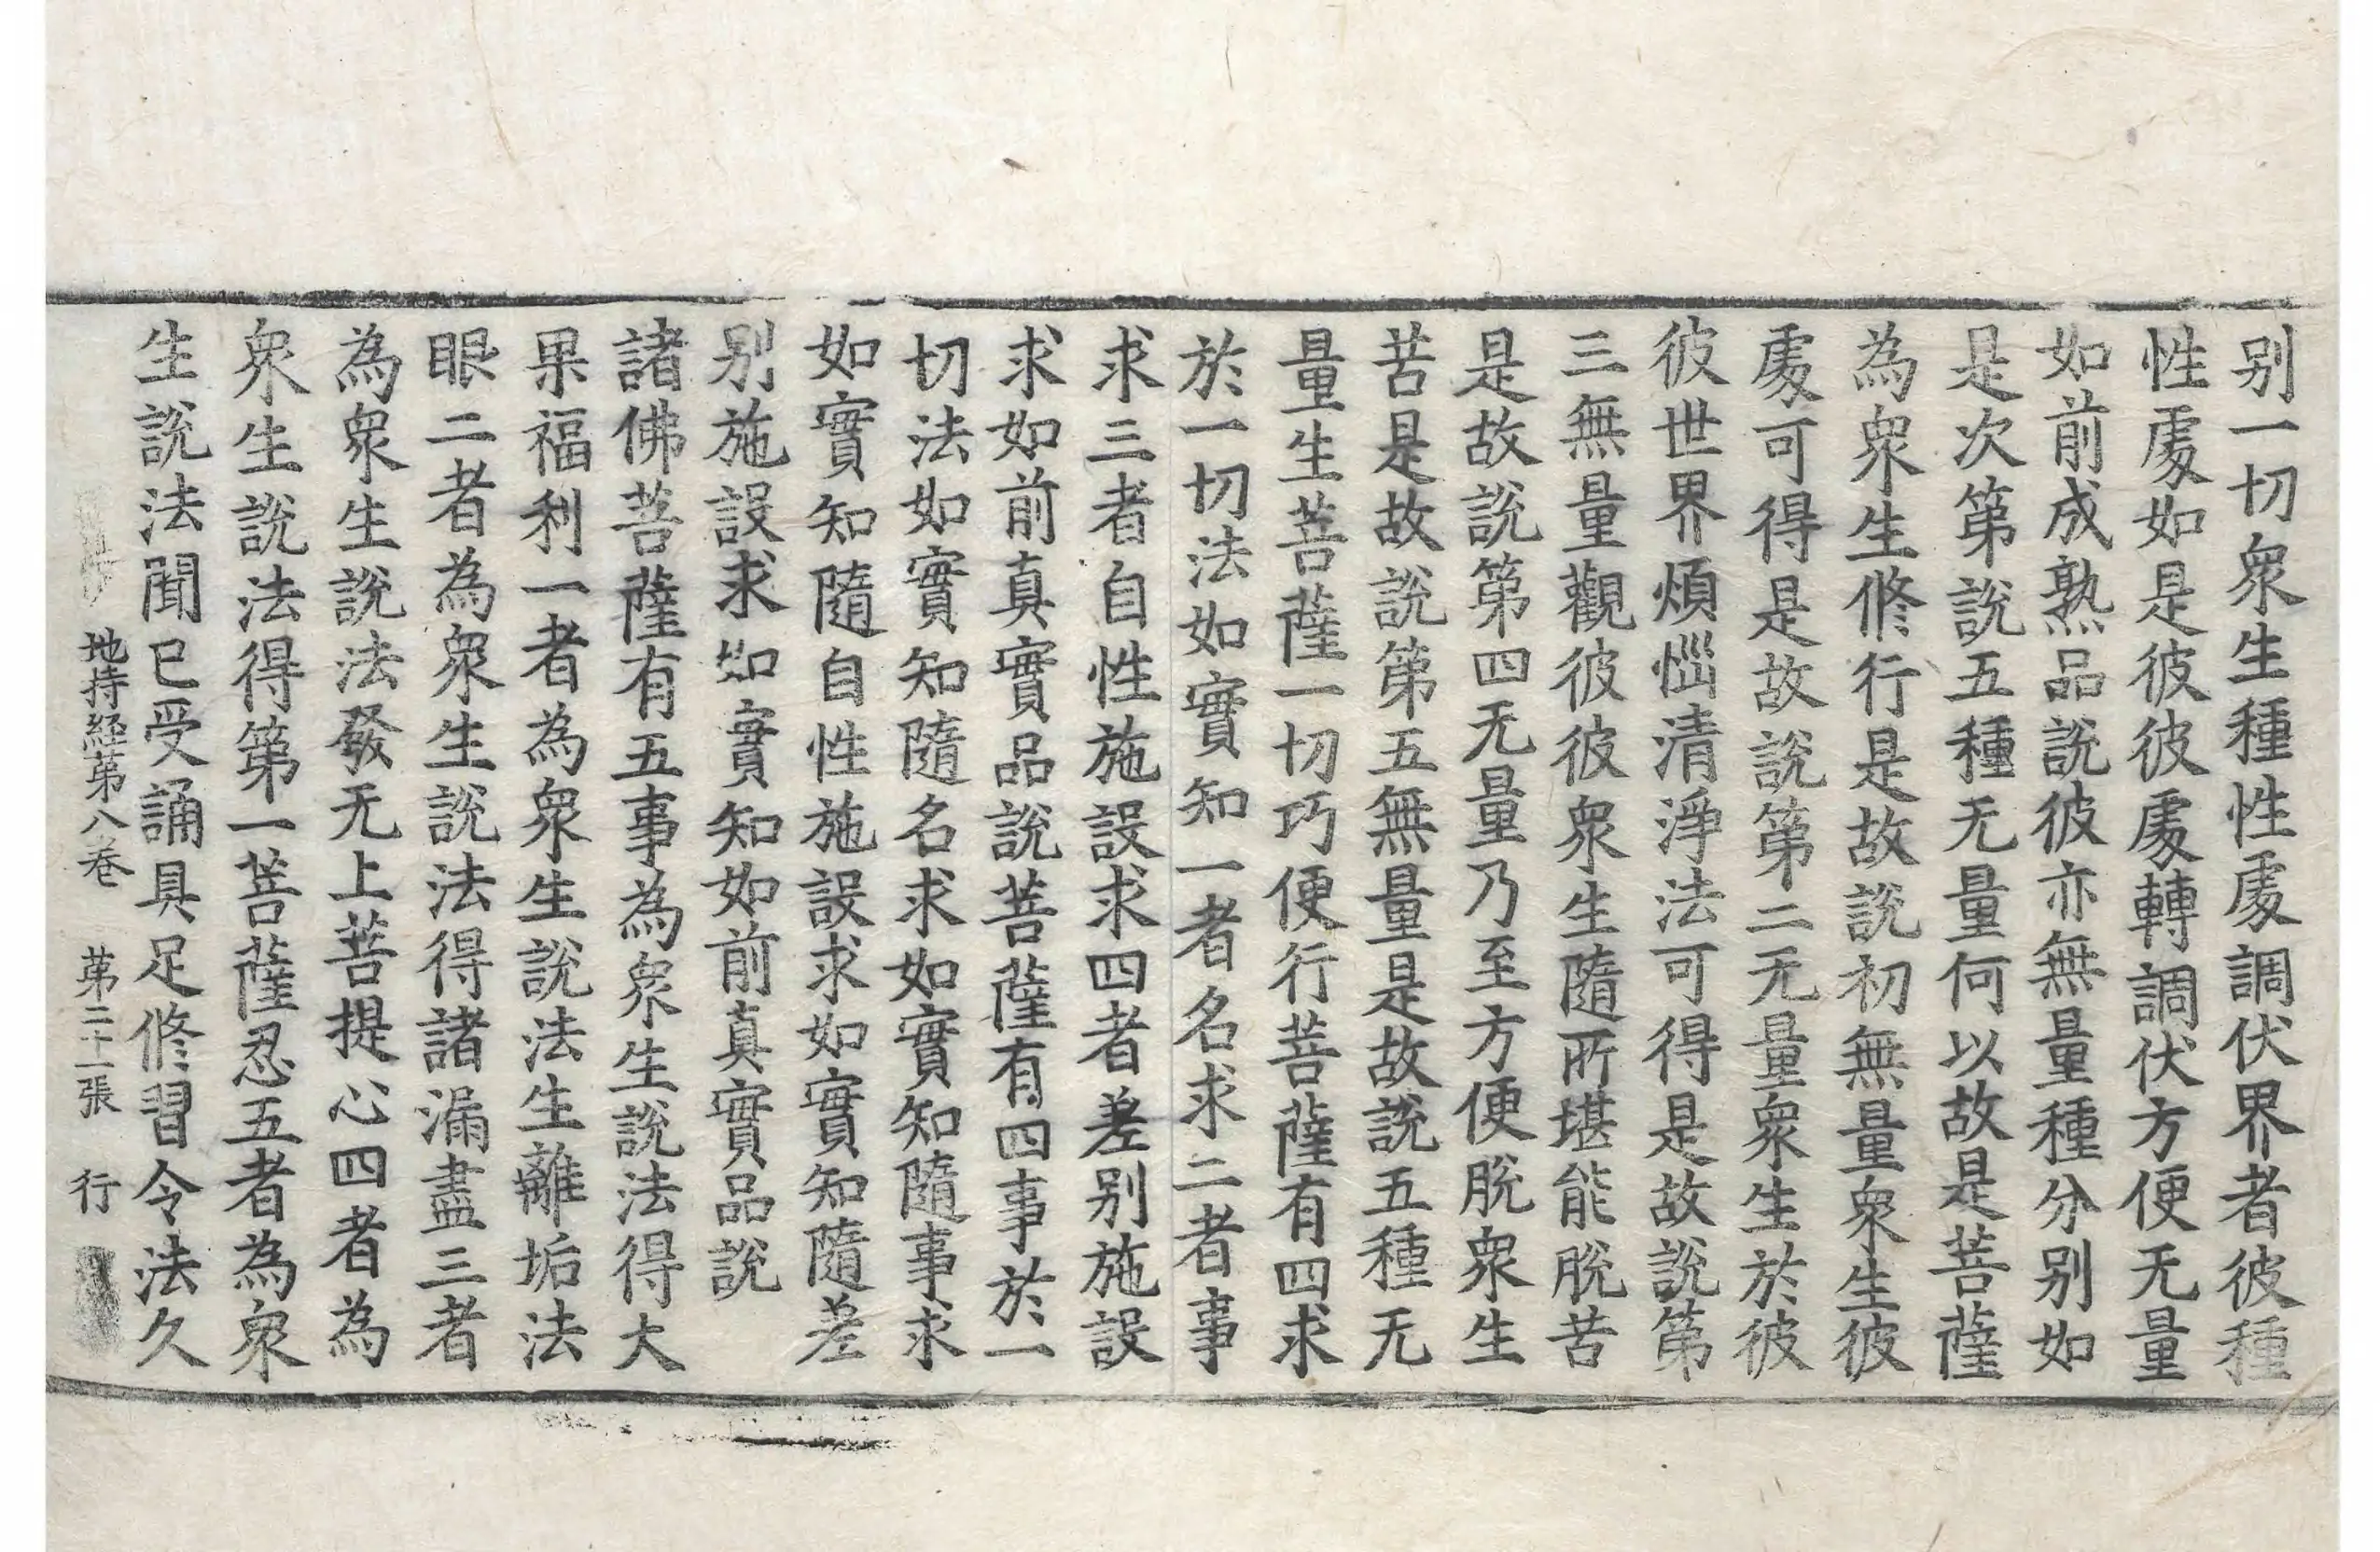 别一切衆生種性處調伏界者彼種
性處如是彼彼處轉調伏方便无量
如前成熟品說彼亦無量種分别如
是次第說五種无量何以故是菩薩
為衆生修行是故說初無量衆生彼
處可得是故說第二无量衆生於彼
彼世界煩惱清淨法可得是故說第
三無量觀彼彼衆生隨所堪能脫苦
是故說第四无量乃至方便脫衆生
苦是故說第五無量是故說五種无
量生菩薩一切巧便行菩薩有四求
於一切法如實知一者名求二者事
求三者自性施設求四者差别施設
求如前真實品說菩薩有四事於一
切法如實知隨名求如實知隨事求
如實知隨自性施設求如實知隨差
别施設求如實知如前真實品說
諸佛菩薩有五事為衆生說法得大
果福利一者為衆生說法生離垢法
眼二者為衆生說法得諸漏盡三者
為衆生說法發无上菩提心四者為
衆生說法得第一菩薩忍五者為衆
生說法聞已受誦具足修習令法久
地持経苐八卷 苐二十一張 行